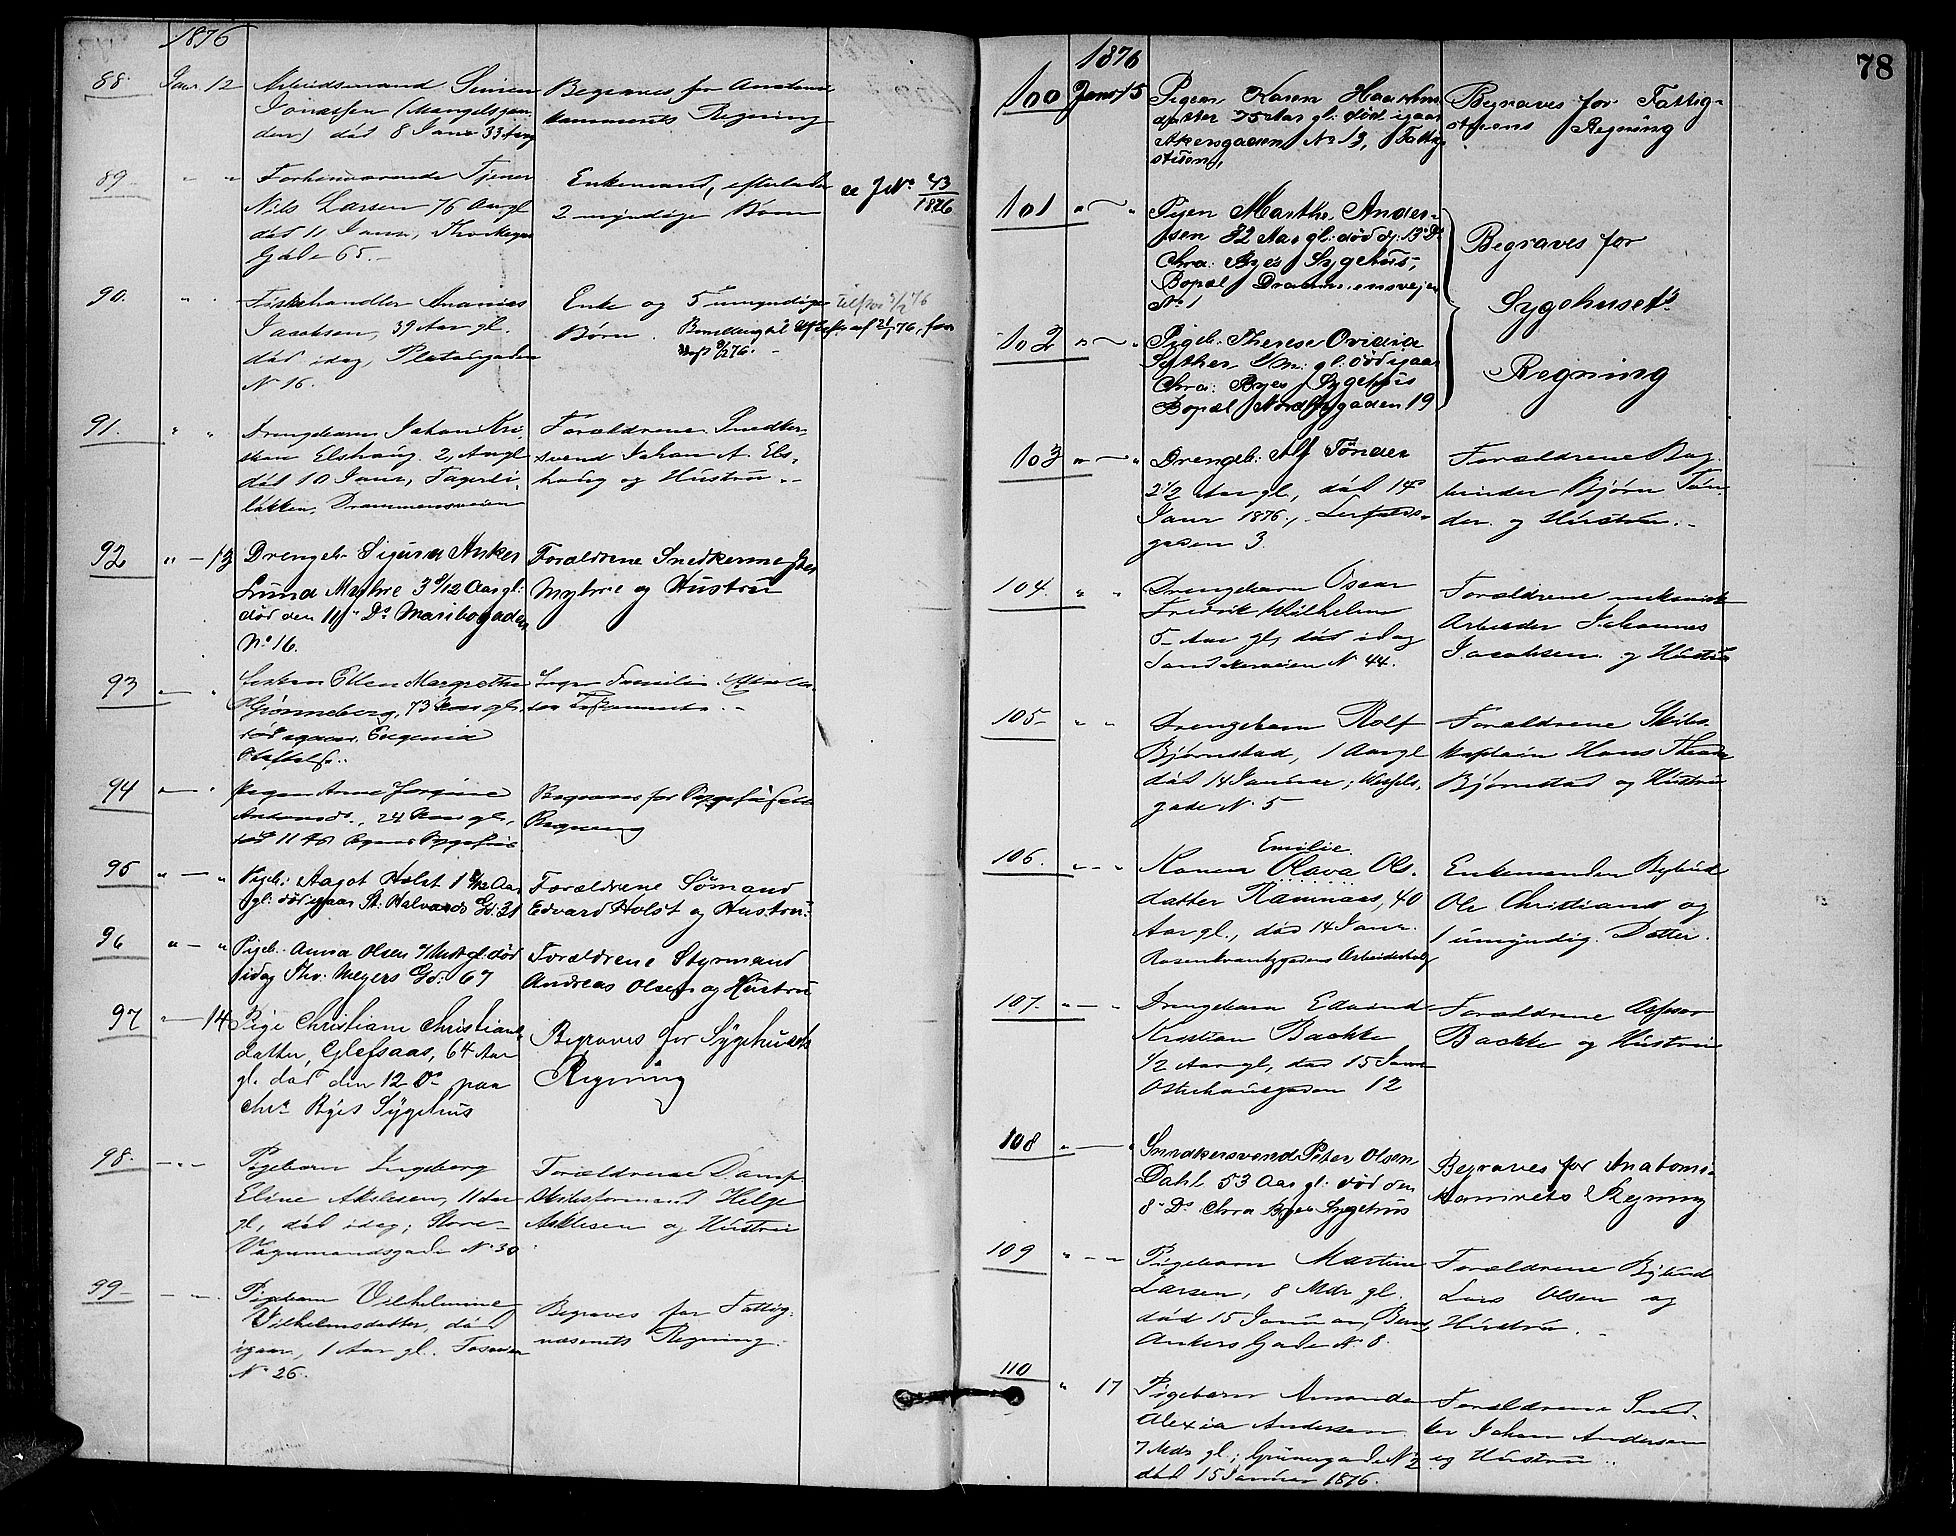 1876
88. Janr 12 Arbeidsmand Simen Begraves for Anatomi
Jonassen (Mangelsgaar kammerets Regning
den) død 8 Janr 33 Aarg
89 " " Forhenværende Tjener Enkemand, efterlader se J.No 43/1876.
Nils Larsen 76 Aar gl 2 myndige Børn
død 11 Janr,
Gade 65.
90. " Fiskehandler Ananias Enke og 5 umyndige
Jacobsen, 39 Aar gl. Børn.
død idag, Platousgaden
No 16.
91. " " Drengebarn Johan Kri Forældrene Snedker-
stian Elshaug 2, Aargl svend Johan A. Els-
død 10 Janr, Fagerli haug og Hustru
løkken, Drammensveien
92 " - 13 Drengeb. Sigurd Anker Forældrene Snedkermester
Lund Myhre 3 9/12 Aar gl: Myhre og Hustru
død den 11 Ds Maribogaden
No 16.
93 Ellen Margrethe
Grønneberg, 73 Aar gl,
død igaar, Eugenia
Stiftelse.
94 Pigen Anne Jørgine Begraves for Sygehusets
24 Aar gl, Regning
død 11 Byens Sygehus
95 " - " Pigeb: Aagot Holst 1 Aar Forældrene Sømand
gl: død igaar St. Halvards Gd: 31 Edvard Holst og Hustru.
96 " - " Pigeb. Anna Olsen død Forældrene Styrmand
idag Thv. Meyers Gd: 67 Andreas Olsen og Hustru
97 " - 14 Pige Christiane Christians Begraves for Sygehusets
datter, Glefsaas, 64 Aar Regning
gl. død den 12 Ds paa
Chra Byes Sygehus
98. Pigebarn Ingeborg Forældrene Damp
Eline Asklesen, 11 Aar skibsformand Helge
gl, død idag; Store Asklesen og Hustru
Vognmandsgade No 30
99 Pigebarn Vilhelmine Begraves for Fattig-
Vilhelmsdatter, død væsenets Regning.
igaar, 1 Aar gl.
No 26.
78
1876
100 Janr 15 Pigen Karen Haagens Begraves for Fattig-
datter 75 Aar gl: død igaar Regning
Akersgaden No 13,
101 " - " Pigen Marthe Ander-
sen 32 Aar gl: død d: 13 Ds Begraves for
Chra: Byes Sygehus,
Bopæl Drammensveien Sygehusets
No 1
102 " - " Pigeb. Therese Ovidia
Sæther 1/2 m: gl. død igaar Regning
Chra: Byes Sygehus
Bopæl Nordbygaden 19
103 " - " Drengeb: Alf Tønder Forældrene Bog
2 1/2 Aar gl, død 14 binder Bjørn Tøn
Janr 1876, der og Hustru.
gaden 3.
104. " " Drengebarn Oscar Forældrene mekanisk
Fredrik Wilhelm Arbeider Johannes
5 Aar gl, død idag Jacobsen og Hustru
Sandakerveien No 44.
105 " " Drengebarn Rolf Forældrene Skibs-
Bjørnstad, 1 Aar gl kaptein Hans
død 14 Januar; Wessels- Bjørnstad og Hustru
gade No 5
106. " - " Emilie
Konen Olava Ols- Enkemanden Bybud
datter Ramnaas, 40 Ole Christians og
Aar gl., død 14 Janr. 1 umyndig Datter.
Rosenkrantzgadens Arbeiderbolig
107. " - " Drengebarn Edvind Forældrene Assessor
Kristian Backke Backke og Hustru
1/2 Aar gl, død 15 Janr
Osterhausgaden 12
108 " - " Snedkersvend Peter Olsen Begraves for Anatomi-
Dahl 53 Aar gl: død den kamrets Regning
8 Ds Chra Byes Sygehus
109 " - " Pigebarn Martine Forældrene Bybud
Larsen, 8 Mdr gl. Lars Olsen og
død 15 Januar, Bernt Hustru.
Ankers Gade No 8.
110 " 17 Pigebarn Amanda Forældrene Sned-
Alexia Andersen ker Johan Andersen
7 Mdr gl; Grünersgade No 2 og Hustru
død 15 Januar 1876.